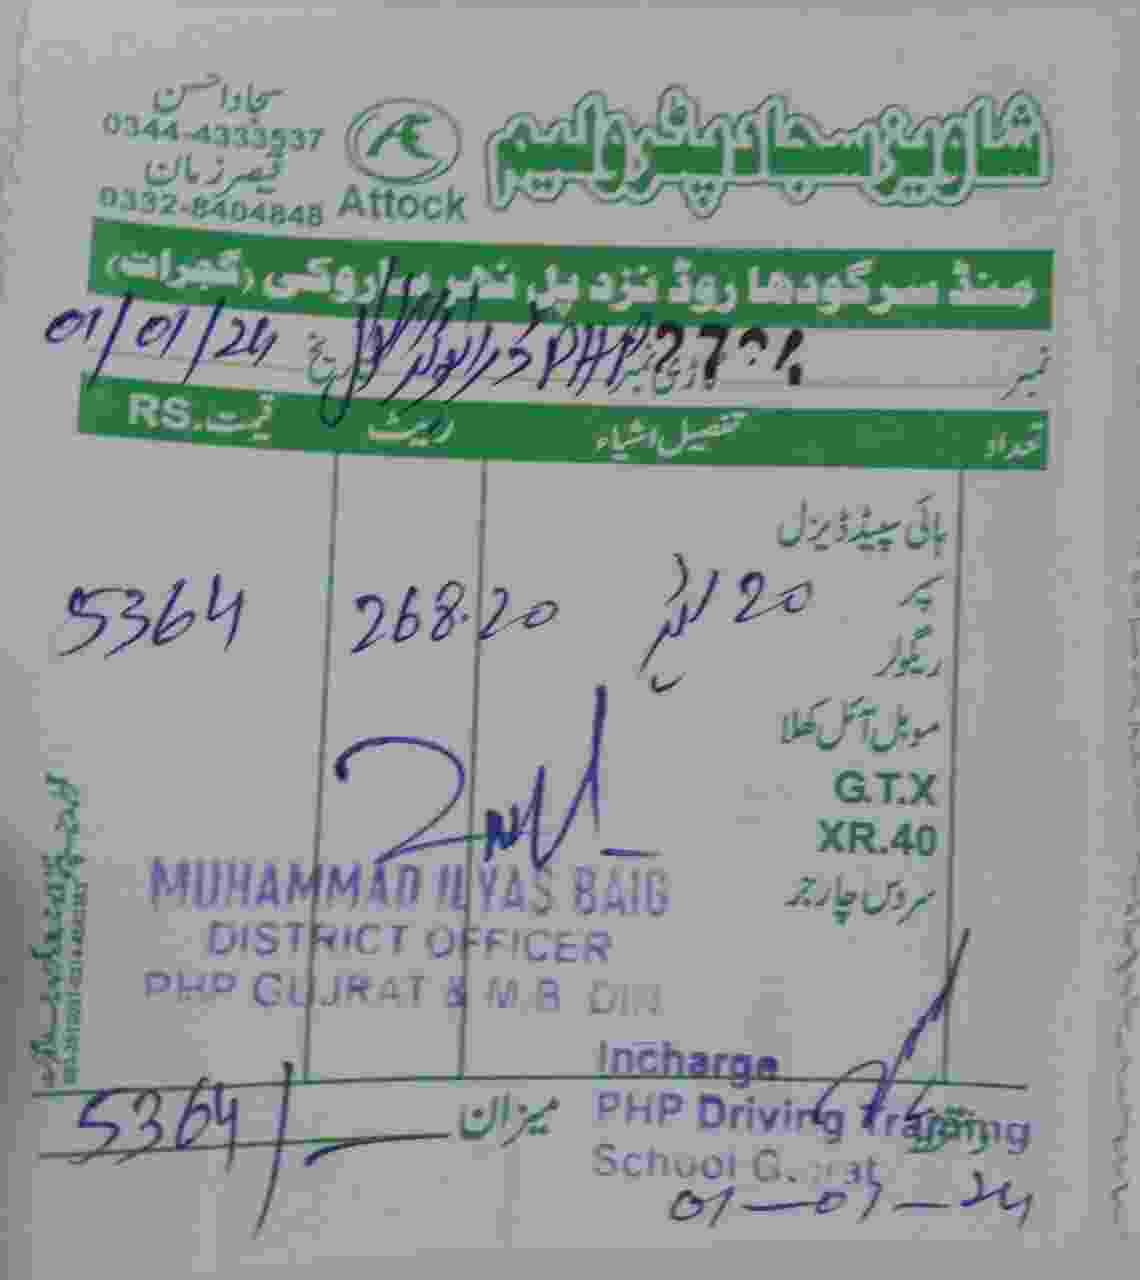 شاویز سجاد پٹرولیم
Attock
سجاد احسن
0344-4333537
قیصر زمان
0332-8404848
منڈ سرگودھا روڈ نزد پل نہر (گجرات)
نمبر PHP ڈرائیونگ سکول تاریخ 01/01/24
تعداد تفصیل اشیاء ریٹ قیمت RS.
ہائی سپیڈ ڈیزل
سپر 20 لیٹر 268.20 5364
ریگولر
موبل آئل کھلا
G.T.X
XR.40
سروس چارجز
MUHAMMAD ILYAS BAIG
DISTRICT OFFICER
PHP GUJRAT & M.B DIN
Incharge
PHP Driving Training
School Gujrat
01-01-24
میزان 5364/